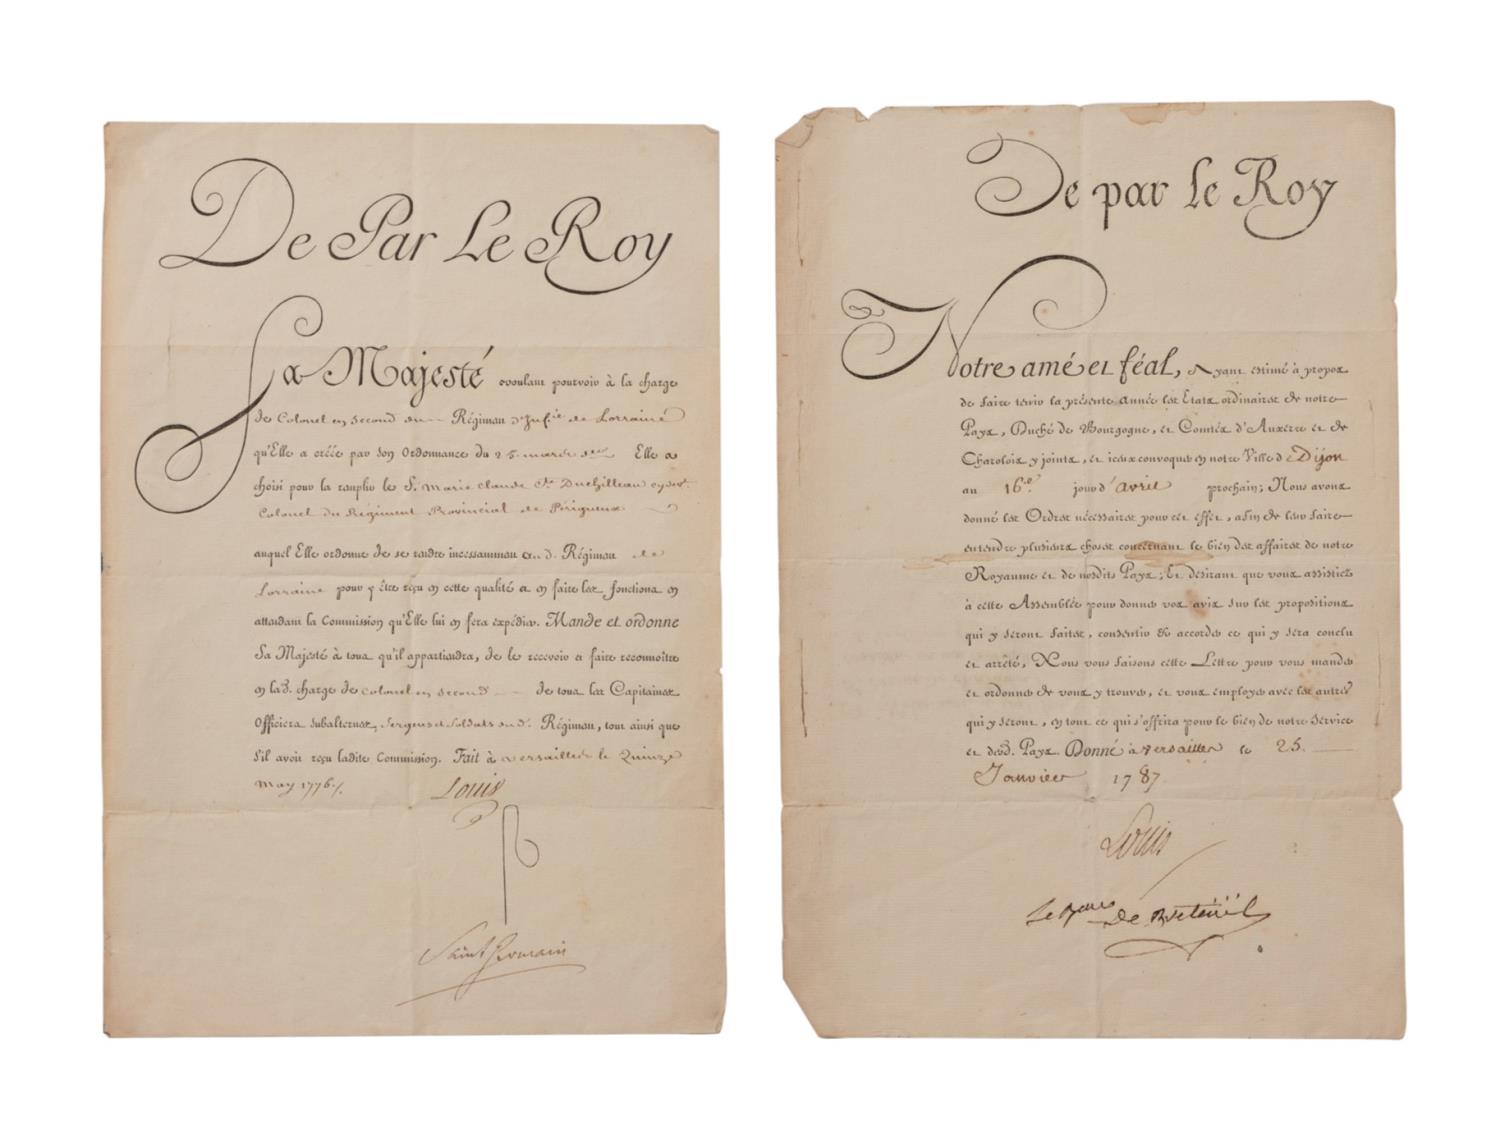 De Par Le Roy
Sa Majesté voulant pourvoir à la charge
de Colonel en second du Régiment d'Infie de Lorraine
qu'Elle a créée par son Ordonnance du 25 mars Elle a
choisi pour la remplir le S. Marie Claude Duchilleau
Colonel du Régiment Provincial de Périgueux
auquel Elle ordonne de se rendre incessamment aud. Régiment de
Lorraine pour y être reçu en cette qualité et en faire les fonctions en
attendant la Commission qu'Elle lui en fera expédier. Mande et ordonne
Sa Majesté à tous qu'il appartiendra, de le recevoir et faire reconnoître
en lad. charge de Colonel en second de tous les Capitaines
Officiers subalternes, Sergens et Soldats dud. Régiment, tout ainsi que
s'il avoit reçu ladite Commission. Fait à Versailles le Quinze
May 1776.
Louis
Saint Germain
De par le Roy
Notre amé et féal, Ayant estimé à propos
de faire tenir la présente Année les Etats ordinaires de notre
Pays, Duché de Bourgogne, et Comtés d'Auxerre et de
Charolois y joints, et iceux convoquer en notre Ville de Dijon
au 16e. jour d'avril prochain; Nous avons
donné les Ordres nécessaires pour cet effet, afin de leur faire
entendre plusieurs choses concernant le bien des affaires de notre
Royaume et de nosdits Pays; Et désirant que vous assistiez
à cette Assemblée pour donner vos avis sur les propositions
qui y seront faites, consentir & accorder ce qui y sera conclu
et arrêté, Nous vous faisons cette Lettre pour vous mander
et ordonner de vous y trouver, et vous employer avec les autres
qui y seront, en tout ce qui s'offrira pour le bien de notre service
et desd. Pays. Donné à Versailles le 25.
Janvier 1787
Louis
Le Baron De Breteüil